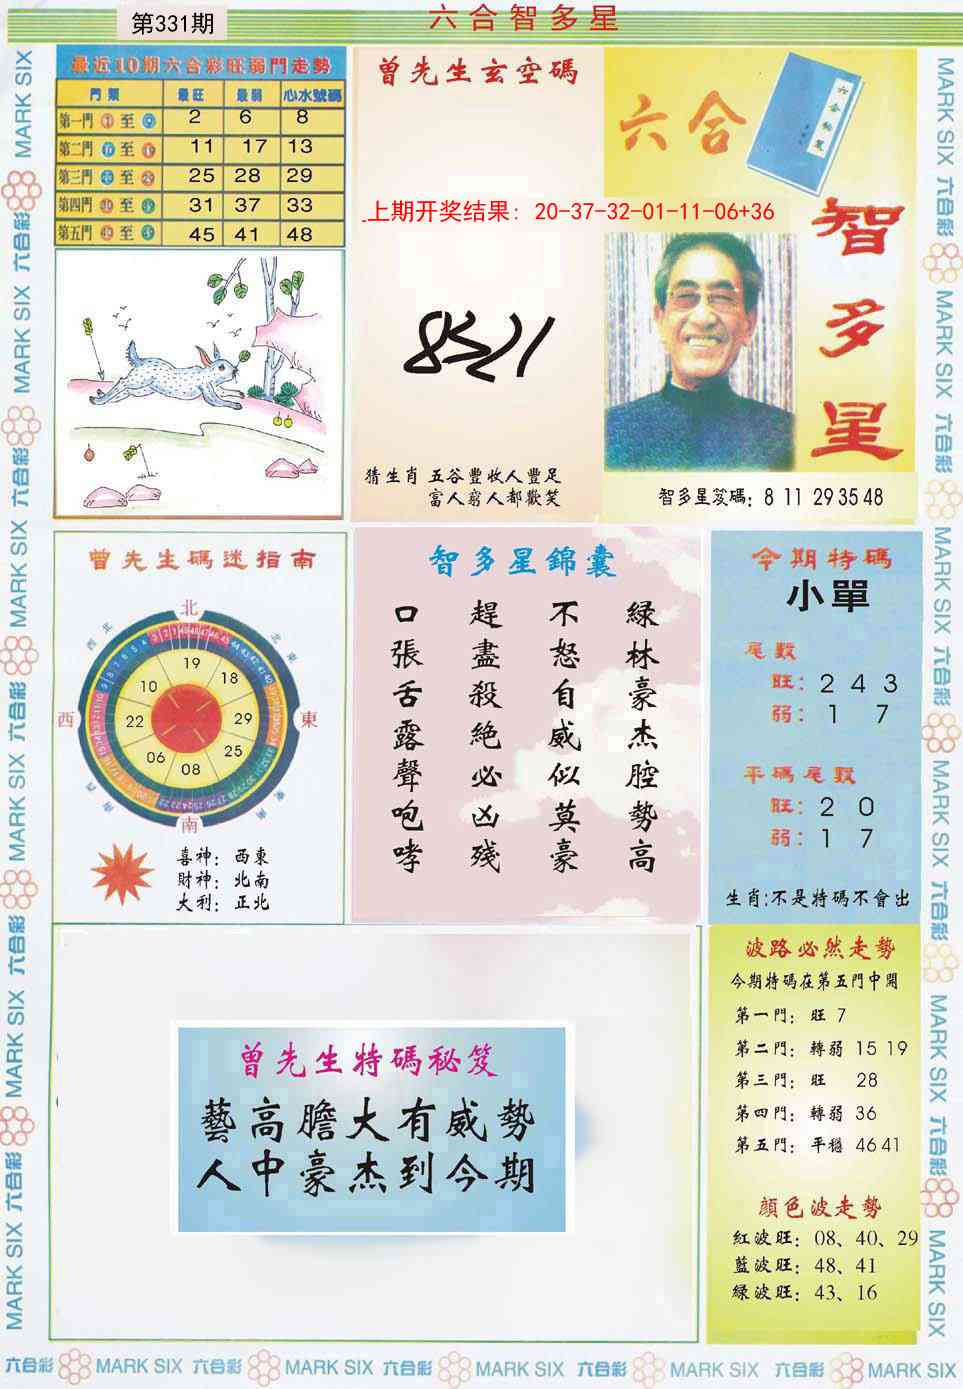 第331期
六合智多星
最近10期六合彩旺弱門走勢
門類 最旺 最弱 心水號碼
第一門 至 2 6 8
第二門 至 11 17 13
第三門 至 25 28 29
第四門 至 31 37 33
第五門 至 45 41 48
曾先生玄空碼
上期开奖结果：20-37-32-01-11-06+36
猜生肖 五谷豐收人豐足
富人窮人都歡笑
六合
智多星
智多星笈碼：8 11 29 35 48
曾先生碼迷指南
北
西北
東北
西
東
西南
東南
南
19
18
29
25
08
06
22
10
喜神：西東
財神：北南
大利：正北
智多星錦囊
綠林豪杰腔勢高
不怒自威似莫豪
趕盡殺絕必凶殘
口張舌露聲咆哮
今期特碼
小單
尾數
旺：2 4 3
弱：1 7
平碼尾數
旺：2 0
弱：1 7
生肖:不是特碼不會出
曾先生特碼秘笈
藝高膽大有威勢
人中豪杰到今期
波路必然走勢
今期特碼在第五門中開
第一門：旺 7
第二門：轉弱 15 19
第三門：旺 28
第四門：轉弱 36
第五門：平穩 46 41
顔色波走勢
紅波旺：08、40、29
藍波旺：48、41
綠波旺：43、16
MARK SIX 六合彩 MARK SIX 六合彩 MARK SIX 六合彩 MARK SIX 六合彩 MARK SIX 六合彩 MARK SIX
MARK SIX 六合彩 MARK SIX 六合彩 MARK SIX 六合彩 MARK SIX 六合彩 MARK SIX 六合彩 MARK SIX
六合彩 MARK SIX 六合彩 MARK SIX 六合彩 MARK SIX 六合彩 MARK SIX 六合彩 MARK SIX